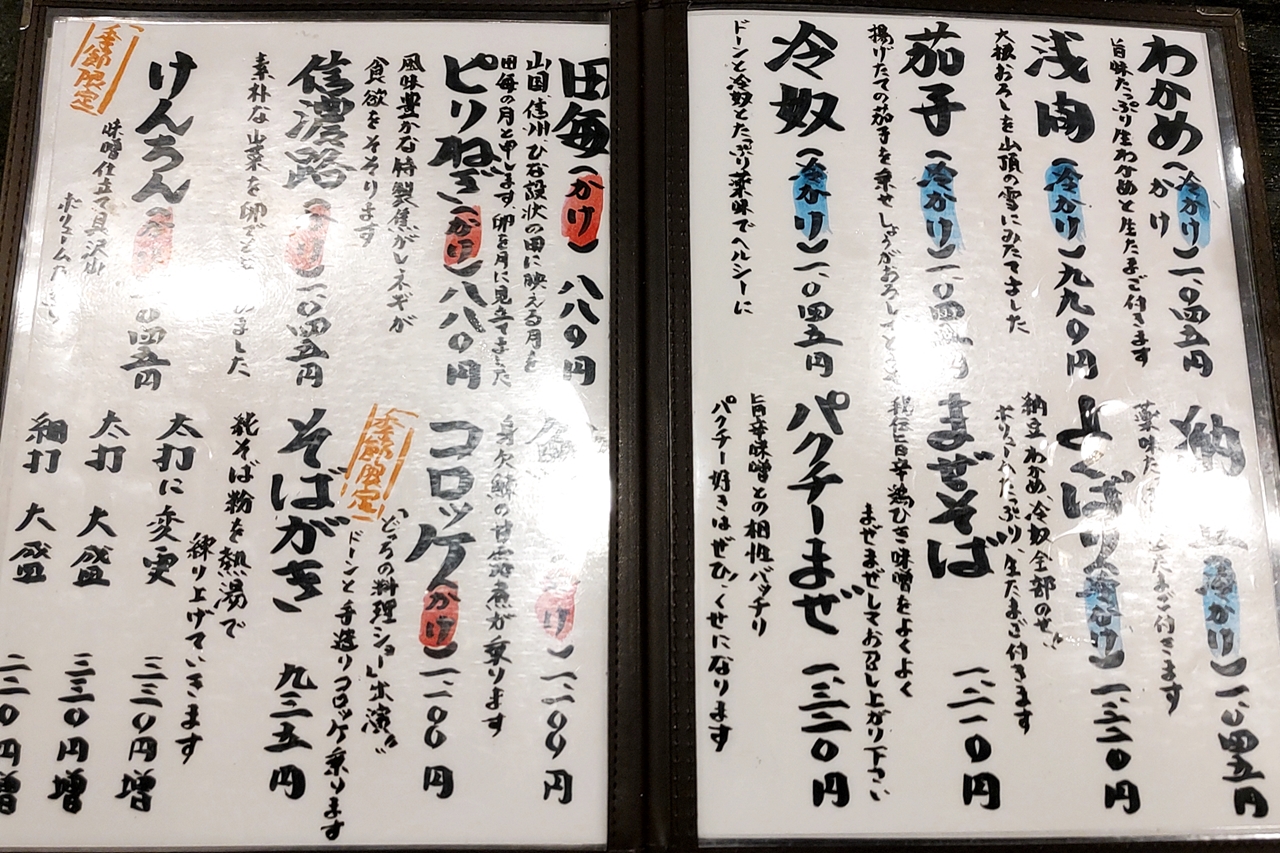 わかめ（冷かけ かけ）一、〇四五円
旨味たっぷり生わかめと生たまご付きます
浅間（冷かけ）九九〇円
大根おろしを山頂の雪にみたてました
茄子（冷かけ）一、〇四五円
揚げたての茄子を乗せしょうがおろしで
冷奴（冷かけ）一、〇四五円
ドーンと冷奴とたっぷり薬味でヘルシーに
納豆（冷かけ）一、〇四五円
薬味た たまご付きます
よくばり（冷かけ）一、三二〇円
納豆、わかめ、冷奴全部のせ!!
ボリュームたっぷり、生たまご付きます
まぜそば 一、二一〇円
旨辛鶏ひき味噌をよくよく
まぜまぜしてお召し上がり下さい
パクチーまぜ 一、三二〇円
旨辛味噌との相性バッチリ
パクチー好きはぜひ、くせになります
田毎（かけ）八八〇円
山国、信州、ひな段状の田に映える月を
田毎の月と申します、卵を月に見立てました
ピリねぎ（かけ）八八〇円
風味豊かな特製焦がしネギが
食欲をそそります
信濃路（かけ）一、〇四五円
素朴な山菜を卵 ました
季節限定
けんちん（かけ）一、〇四五円
味噌仕立て具沢山
ボリューム
け）一、一〇〇円
身欠鰊の甘露煮が乗ります
コロッケ（かけ）一、一〇〇円
季節限定
「どっちの料理ショー」出演!!
ドーンと手造りコロッケ乗ります
そばがき 九三五円
純そば粉を熱湯で
練り上げていきます
太打に変更 三三〇円増
太打 大盛 三三〇円増
細打 大盛 二二〇円増